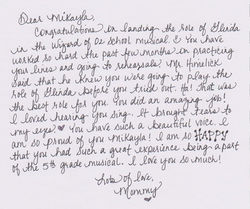 Dear Mikayla,
Congratulations on landing the role of Glinda
in the Wizard of Oz School musical! You have
worked so hard the past few months in practicing
your lines and going to rehearsals! Mr. Himelick
said that he knew you were going to play the
role of Glinda before you tried out. Ha! That was
the best role for you. You did an amazing job!
I loved hearing you sing. It brought tears to
my eyes ♥ You have such a beautiful voice. I
am so proud of you Mikayla! I am so HAPPY
that you had such a great experience being a part
of the 5th grade musical. I love you so much!
Lots of love,
Mommy ♥